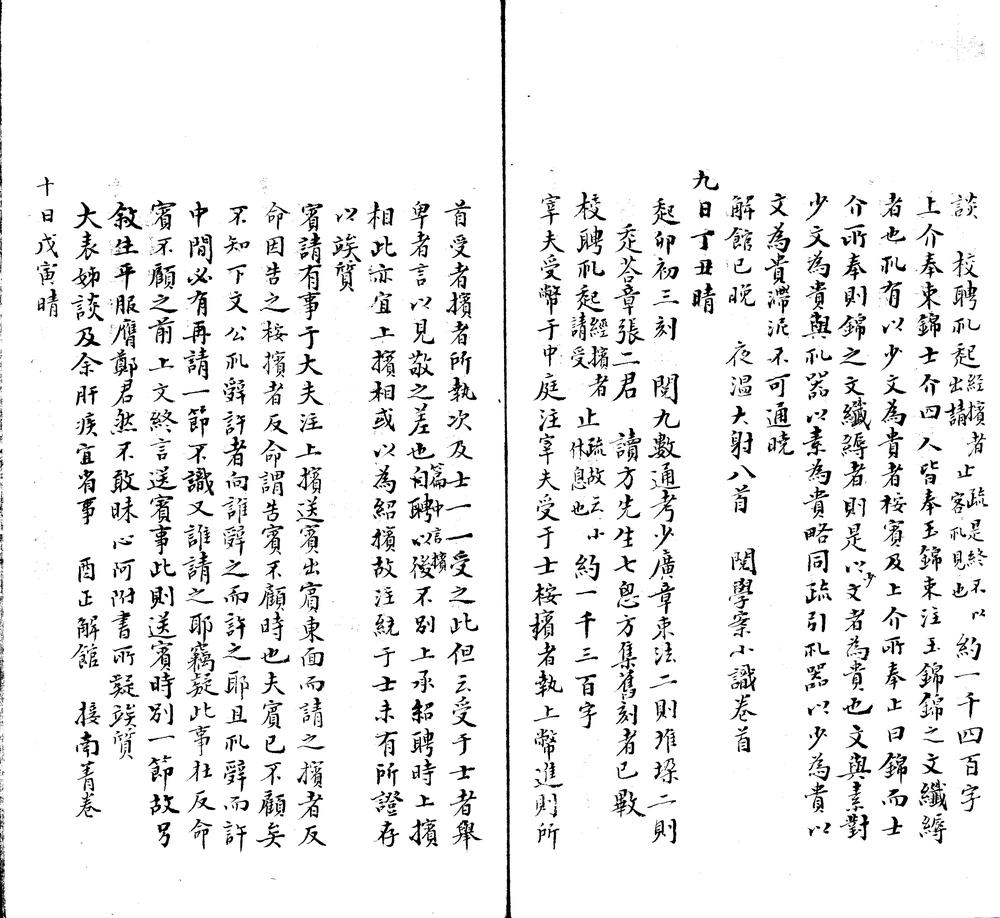 談　校聘礼起經擯者出請止疏是終不以客礼見也約一千四百字
上介奉束錦士介四人皆奉玉錦束注玉錦錦之文纖縟
者也礼有以少文為貴者桉賓及上介所奉止曰錦而士
介所奉則錦之文纖縟者則是以少文者為貴也文與素對
少文為貴與礼器以素為貴略同疏引礼器以少為貴以
文為貴滯泥不可通曉
解館已晚　夜温大射八首　閱學案小識卷首
九日丁丑晴
起卯初三刻　閱九數通考少廣章束法二則堆垛二則
荃章張二君　讀方先生七思方集舊刻者已數
校聘礼起經擯者請受止疏故云小休息也約一千三百字
宰夫受幣于中庭注宰夫受于士桉擯者執上幣進則所
首受者擯者所執次及士一一受之此但云受于士者舉
卑者言以見敬之差也自篇中言擯聘以後不別上承紹聘時上擯
相此亦宜上擯相或以為紹擯故注統于士未有所證存
以竢質
賓請有事于大夫注上擯送賓出賓東面而請之擯者反
命因告之桉擯者反命謂告賓不顧時也夫賓已不顧矣
不知下文公礼辭許者向誰辭之而許之耶且礼辭而許
中間必有再請一節不識又誰請之耶竊疑此事在反命
賓不顧之前上文終言送賓事此則送賓時別一節故另
敘生平服膺鄭君然不敢昧心阿附書所疑竢質
大表姊談及余肝疾宜省事　酉正解館　接南菁卷
十日戊寅晴